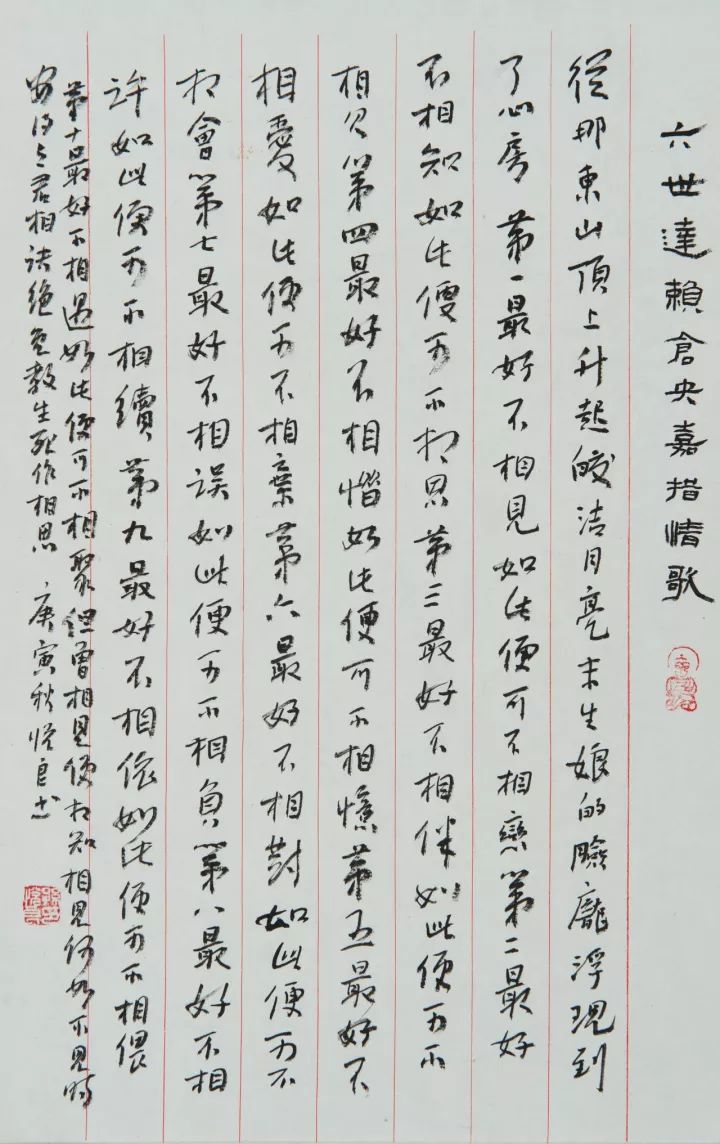 六世達賴倉央嘉措情歌
從那東山頂上升起皎洁月亮未生娘的臉龐浮現到
了心房第一最好不相見如此便可不相戀第二最好
不相知如此便可不相思第三最好不相伴如此便可不
相欠第四最好不相惜如此便可不相憶第五最好不
相愛如此便可不相棄第六最好不相對如此便可不
相會第七最好不相誤如此便可不相負第八最好不相
許如此便可不相續第九最好不相依如此便可不相偎
第十最好不相遇如此便可不相聚但曾相見便相知相見何如不見時
安得与君相訣絕免教生死作相思 庚寅秋 良書